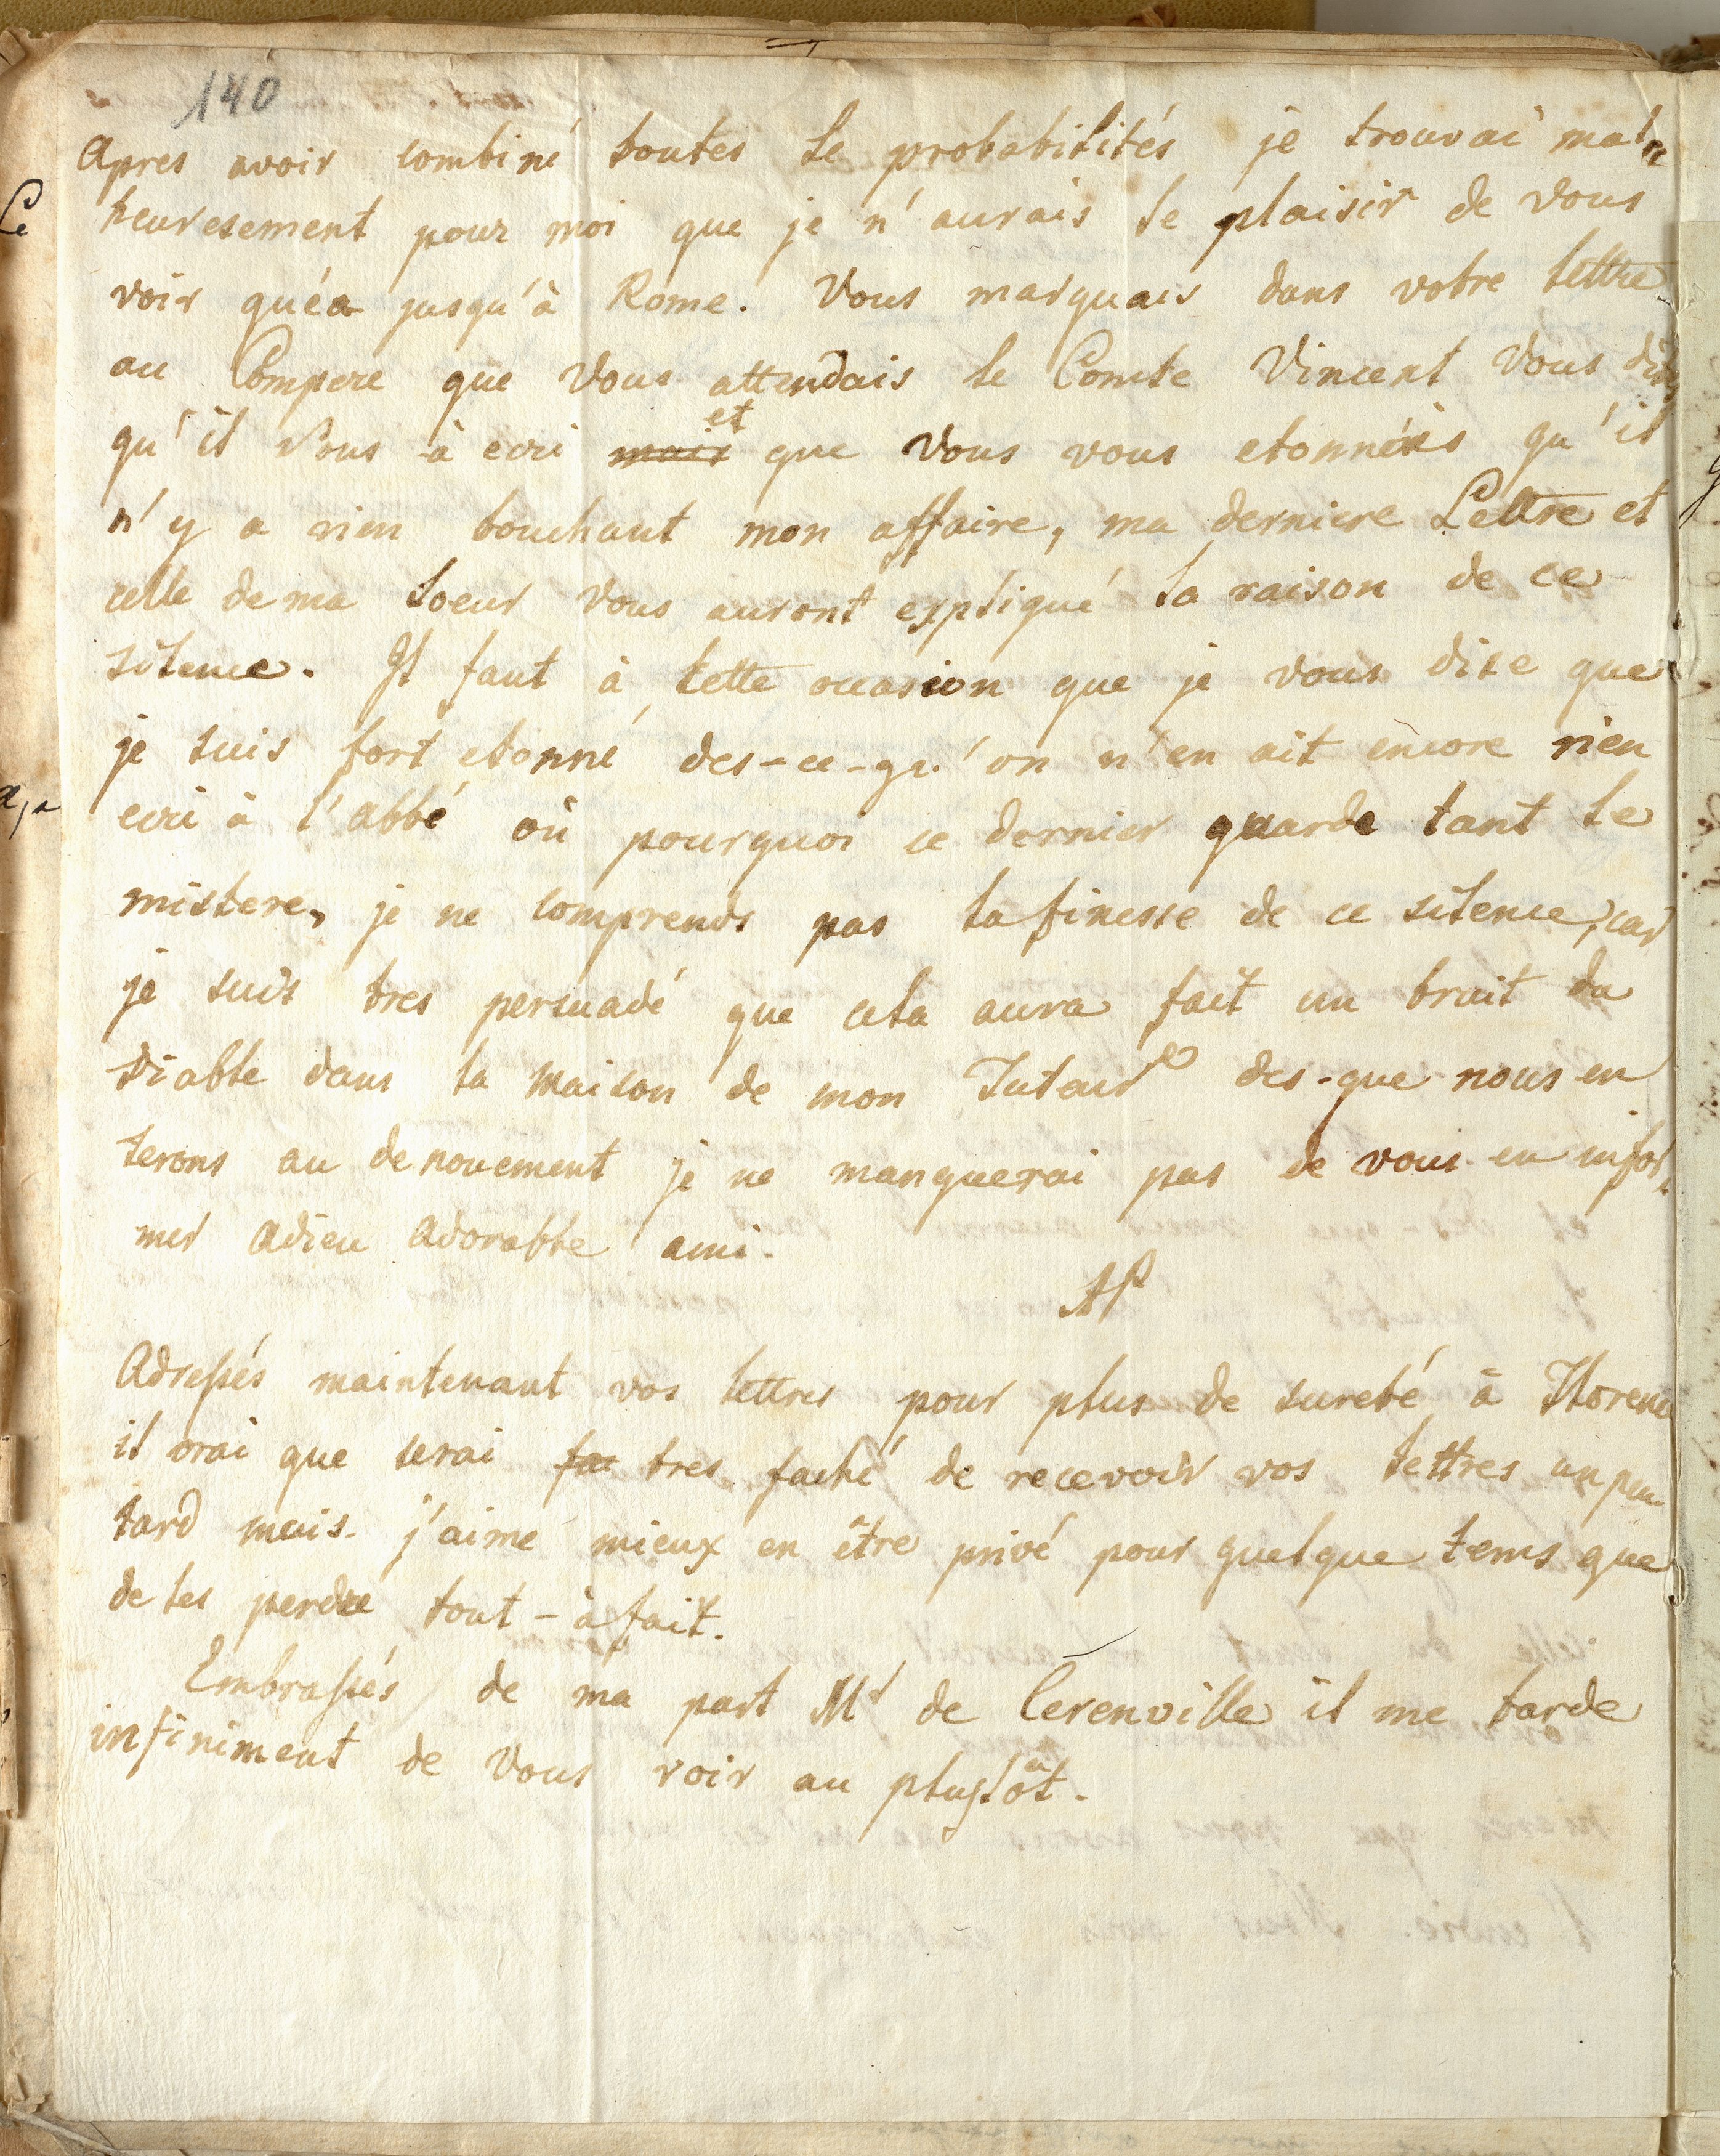 140
Apres avoir combiné toutes le probabilités je trouvai mal
heuresement pour moi que je n'aurais le plaisir de vous
voir qu'ea jusqu'à Rome. Vous marquais dans votre lettre
au Compere que vous attendais le Comte Vincent vous
qu'il vous à ecri mais et que vous vous etonnéis qu'il
n'y a rien touchant mon affaire, ma derniere Lettre et
celle de ma Soeur vous auront expliqué la raison de ce
silence. Il faut à cette occasion que je vous dise que
je suis fort etonné des-ce-qu'on n'en ait encore rien
ecri à l'abbé où pourquoi ce dernier guarde tant le
mistere, je ne comprends pas la finesse de ce silence, car
je suis tres persuadé que cela aura fait un bruit du
Diable dans la Maison de mon Tuteur des-que nous en
serons au denouement je ne manquerai pas de vous en infor
mer Adieu Adorable ami.
AP
Adressés maintenant vos lettres pour plus de sureté à Florence
il vrai que serai fa tres faché de recevoir vos lettres un peu
tard mais j'aime mieux en être privé pour quelque tems que
de les perdre tout-à fait.
Embrassés de ma part Mr de Cerenville il me tarde
infiniment de vous voir au plustôt.